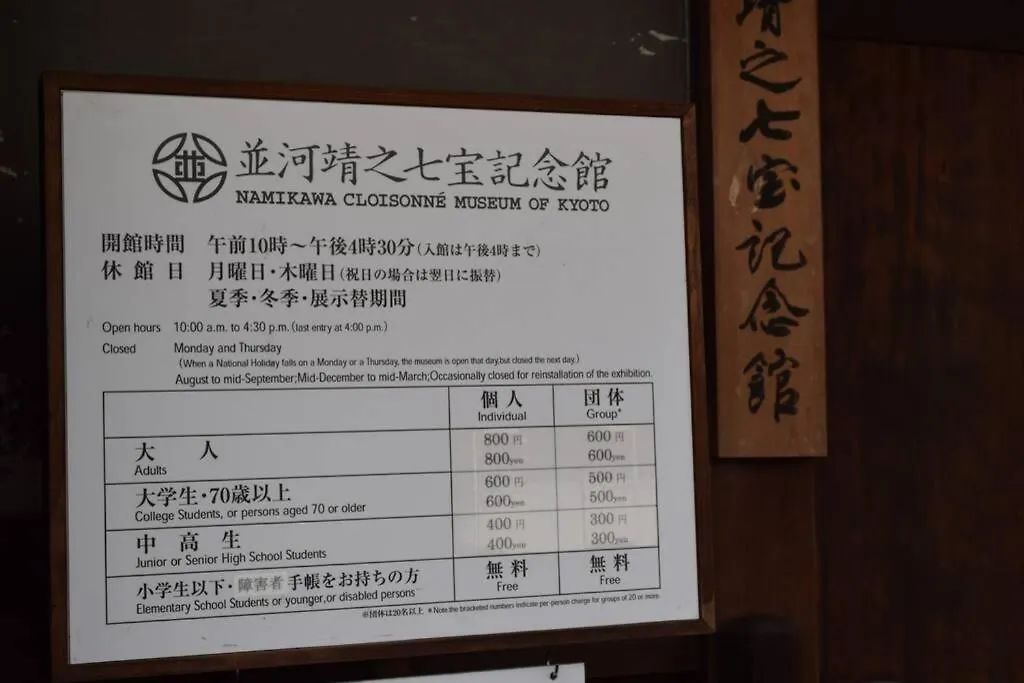 並河靖之七宝記念館
NAMIKAWA CLOISONNÉ MUSEUM OF KYOTO
開館時間 午前10時～午後4時30分(入館は午後4時まで)
休館日 月曜日・木曜日(祝日の場合は翌日に振替)
夏季・冬季・展示替期間
Open hours 10:00 a.m. to 4:30 p.m. (last entry at 4:00 p.m.)
Closed Monday and Thursday
(When a National Holiday falls on a Monday or a Thursday, the museum is open that day,but closed the next day.)
August to mid-September;Mid-December to mid-March;Occasionally closed for reinstallation of the exhibition.
個人 団体
Individual Group*
大人 800円 600円
Adults 800yen 600yen
大学生・70歳以上 600円 500円
College Students, or persons aged 70 or older 600yen 500yen
中高生 400円 300円
Junior or Senior High School Students 400yen 300yen
小学生以下・障害者手帳をお持ちの方 無料 無料
Elementary School Students or younger,or disabled persons Free Free
※団体は20名以上 *Note:the bracketed numbers indicate per-person charge for groups of 20 or more.
靖之七宝記念館